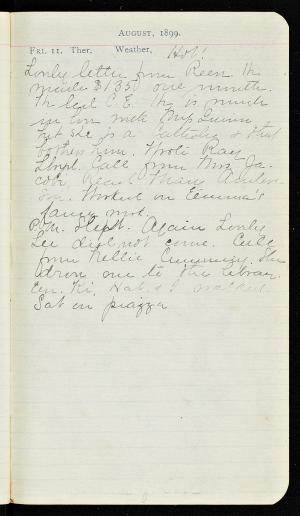 August, 1899.
Fri. 11. Ther. Weather, Hot!
Lovely letter from Reen. He
made $135.0 one month.
He is much
in love with Miss Quinn
but she is a Catholic & that
bothers him. Wrote Ray
Lloyd. Call from Mrs. Ja-
cobi. Read Mary
Worked on Emma's
fancy
P.M. Slept. Again Lovely
Lee did not come. Call
from Nellie She
drove me to the Library.
Eve. Ki, Hat & I walked.
Sat on piazza